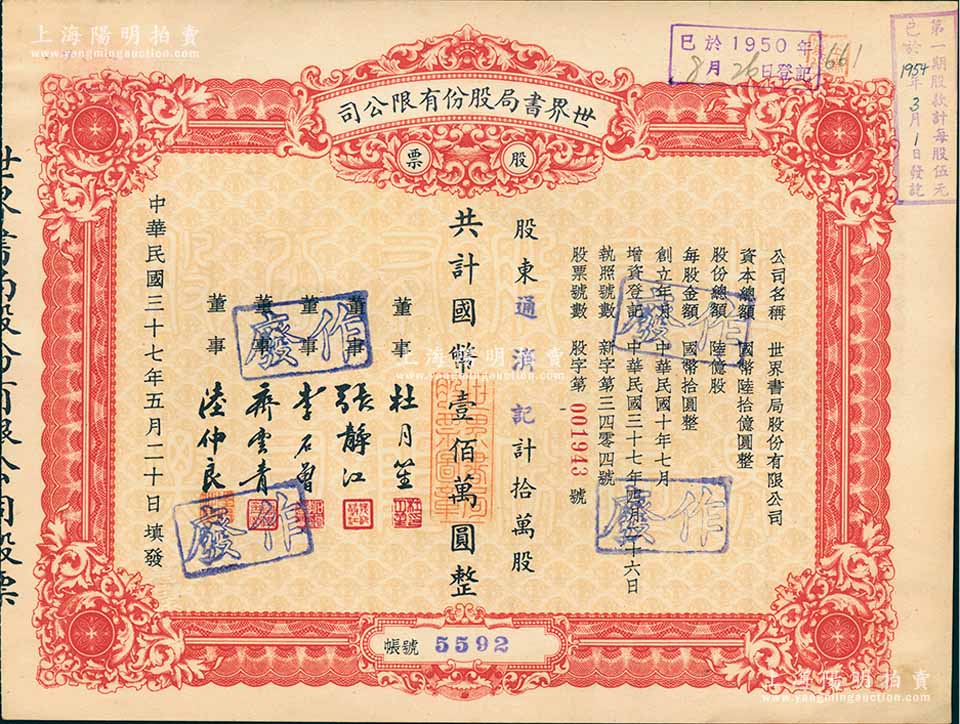 上海陽明拍賣
www.yangmingauction.com
已於1950年
8月26日登記
661
第一期股款計每股伍元
已於1954年3月1日發訖
世界書局股份有限公司
股票
公司名稱 世界書局股份有限公司
資本總額 國幣陸拾億圓整
股份總額 陸億股
每股金額 國幣拾圓整
創立年月 中華民國十年七月
增資登記 中華民國三十七年四月二十六日
執照號數 新字第三四零四號
股票號數 股字第001943號
股東通濟記計拾萬股
共計國幣壹佰萬圓整
董事 杜月笙
董事 張靜江
董事 李石曾
董事 齊雲青
董事 陸仲良
中華民國三十七年五月二十日填發
作廢
作廢
作廢
作廢
帳號 5592
世界書局股份有限公司股票
上海陽明拍賣
www.yangmingauction.com
上海陽明拍賣
www.yangmingauction.com